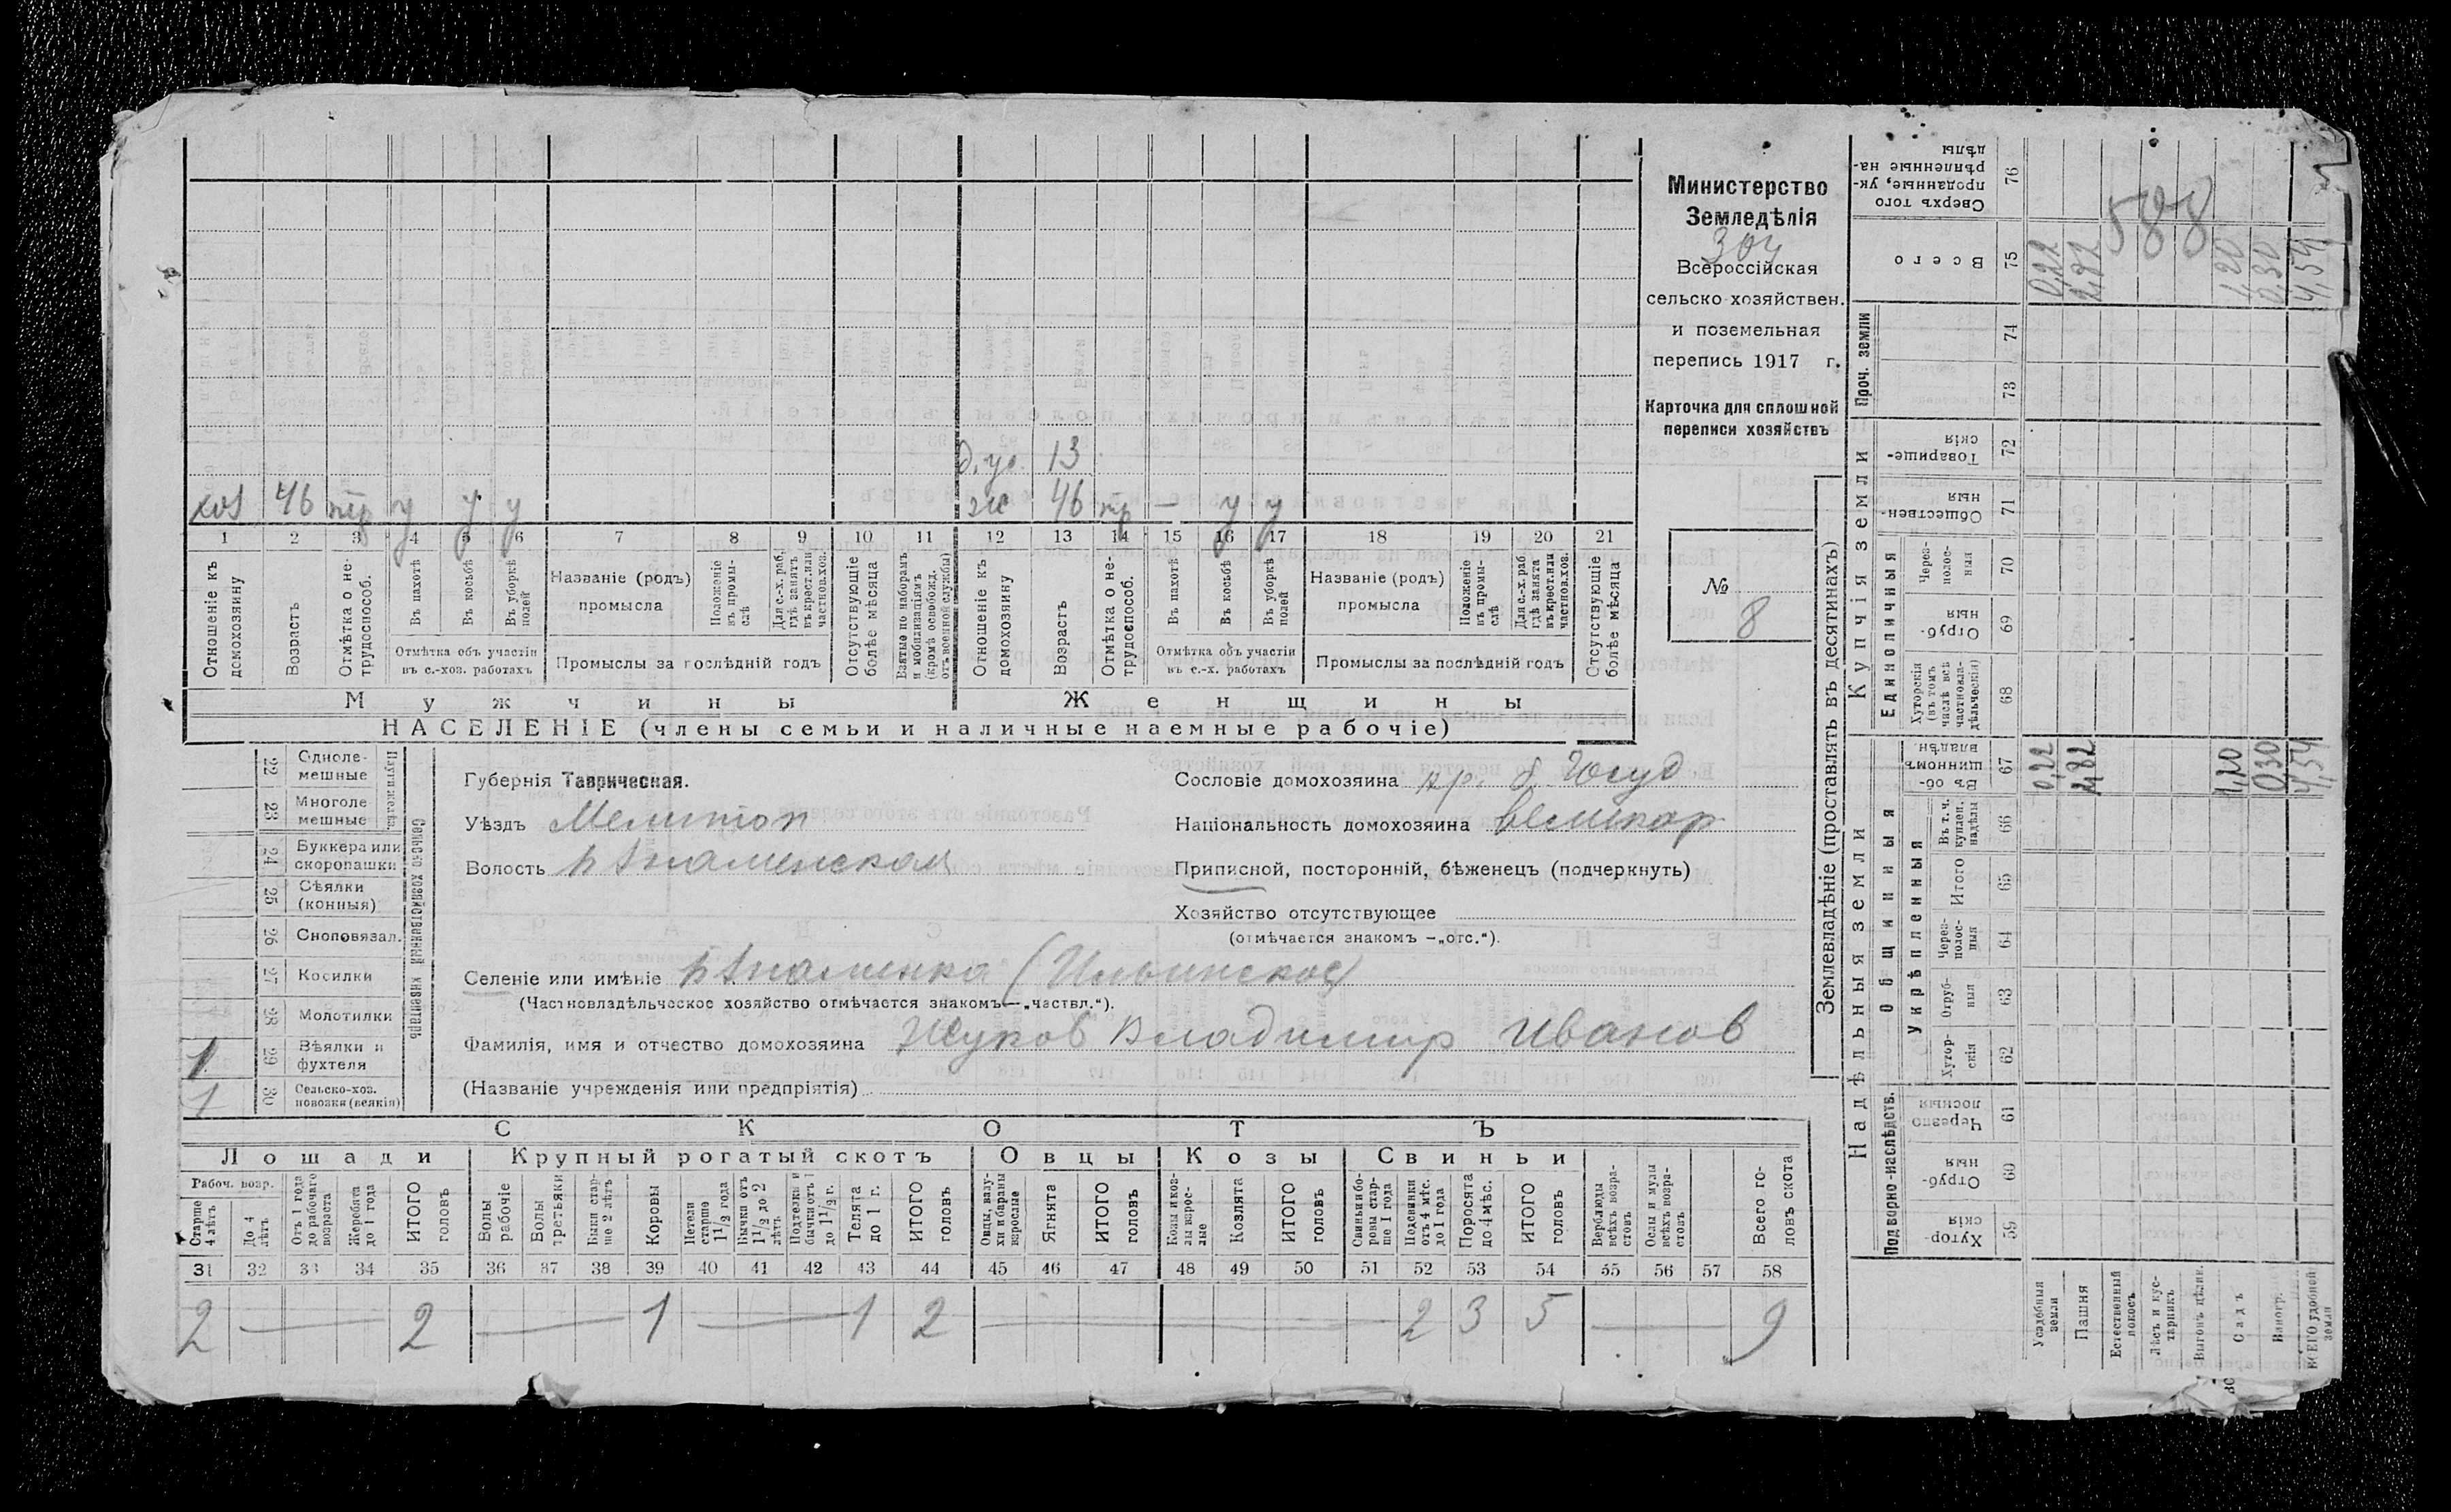 хоз 46 тр у у у
д. уд. 13
ж 46 тр — у у
1 2 3 4 5 6 7 8 9 10 11 12 13 14 15 16 17 18 19 20 21
Отношеніе къ домохозяину
Возрастъ
Отмѣтка о не-трудоспособ.
Въ пахотѣ
Въ косьбѣ
Въ уборкѣ полей
Отмѣтка объ участіи
въ с.-хоз. работахъ
Названіе (родъ)
промысла
Положеніе въ промы-слѣ
Для с.-х. раб. гдѣ занятъ въ крест. или частнов. хоз.
Промыслы за послѣдній годъ
Отсутствующіе болѣе мѣсяца
Взятые по наборамъ и мобилизаціямъ (кромѣ освобожд. отъ военной службы)
Отношеніе къ домохозяину
Возрастъ
Отмѣтка о не-трудоспособ.
Въ пахотѣ
Въ косьбѣ
Въ уборкѣ полей
Отмѣтка объ участіи
въ с.-х. работахъ
Названіе (родъ)
промысла
Положеніе въ промы-слѣ
Для с.-х. раб. гдѣ занята въ крест. или частнов. хоз.
Промыслы за послѣдній годъ
Отсутствующіе болѣе мѣсяца
Мужчины Женщины
НАСЕЛЕНІЕ (члены семьи и наличные наемные рабочіе)
Министерство
Земледѣлія
304
Всероссійская
сельско-хозяйствен.
и поземельная
перепись 1917 г.
Карточка для сплошной
переписи хозяйствъ
№
8
22 Одноле-мешные
23 Многоле мешные
24 Буккера или скоропашки
25 Сѣялки (конныя)
26 Сноповязал.
27 Косилки
28 Молотилки
1 29 Вѣялки и фухтеля
1 30 Сельско-хоз. повозки (всякія)
Сельско-хозяйственный инвентарь
Губернія Таврическая.
Уѣздъ Мелитоп
Волость Знаменская
Селеніе или имѣніе Знаменка (Ильинское)
(Частновладѣльческое хозяйство отмѣчается знакомъ—„частвл.“).
Фамилія, имя и отчество домохозяина Жуков Владимир Иванов
(Названіе учрежденія или предпріятія)
Сословіе домохозяина кр. б. Госуд
Національность домохозяина великор
Приписной, посторонній, бѣженецъ (подчеркнуть)
Хозяйство отсутствующее
(отмѣчается знакомъ —„отс.“).
СКОТЪ
Лошади Крупный рогатый скотъ Овцы Козы Свиньи
Рабоч. возр.
Старше 4 лѣтъ
До 4 лѣтъ
Отъ 1 года до рабочаго возраста
Жеребята до 1 года
ИТОГО головъ
Волы рабочіе
Волы третьяки
Быки стар-ше 2 лѣтъ
Коровы
Нетели старше 1½ года
Бычки отъ 1½ до 2 лѣтъ
Подтелки и бычки отъ 1 до 1½ г.
Телята до 1 г.
ИТОГО головъ
Овцы, валу-хи и бараны взрослые
Ягнята
ИТОГО головъ
Козы и коз-лы взрос-лые
Козлята
ИТОГО головъ
Свиньи и бо-ровы стар-ше 1 года
Подсвинки отъ 4 мѣс. до 1 года
Поросята до 4 мѣс.
ИТОГО головъ
Верблюды всѣхъ возра-стовъ
Ослы и мулы всѣхъ возра-стовъ
Всего го-ловъ скота
31 32 33 34 35 36 37 38 39 40 41 42 43 44 45 46 47 48 49 50 51 52 53 54 55 56 57 58
2 — 2 — 1 — 1 2 — 2 3 5 — 9
Землевладѣніе (проставлять въ десятинахъ)
Надѣльныя земли
Купчія земли
Проч. земли
Подворно-наслѣдств.
Общинныя
Укрѣпленныя
Единоличныя
Хутор-скія 59
Отруб-ныя 60
Черезпо лосныя 61
Хутор-скія 62
Отруб-ныя 63
Через-полос-ныя 64
Итого 65
Въ т. ч. куплен. надѣлы 66
Въ об-щинномъ владѣн. 67
Хуторскія (въ томъ числѣ всѣ частновла-дѣльческія) 68
Отруб-ныя 69
Через-полос-ныя 70
Обществен-ныя 71
Товарище-скія 72
73
74
Всего 75
Сверхъ того проданные, ук-рѣпленные на-дѣлы 76
Усадебныя земли 0,22 0,22
Пашня 2,82 2,82
Естественный покосъ
Лѣсъ и кус-тарникъ
Выгонъ цѣлик.
Садъ 1,20 1,20
Виногр. 0,30 0,30
ВСЕГО удобной земли 4,54 4,54
588